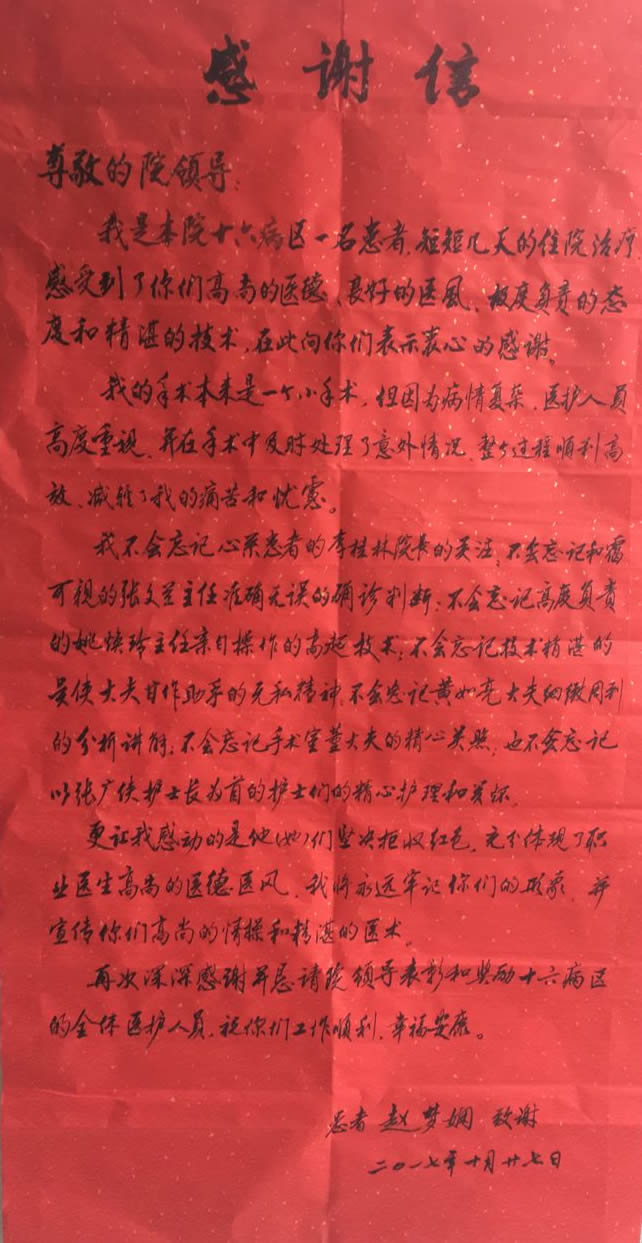 感谢信
尊敬的院领导:
我是本院十六病区一名患者,短短几天的住院治疗,
感受到了你们高尚的医德、良好的医风、极度负责的态
度和精湛的技术,在此向你们表示衷心的感谢。
我的手术本来是一个小手术,但因为病情复杂,医护人员
高度重视,并在手术中及时处理了意外情况,整个过程顺利高
放、减轻了我的痛苦和忧虑。
我不会忘记心系患者的李桂林院长的关注;不会忘记和蔼
可视的张文兰主任准确无误的确诊判断;不会忘记高度负责
的姚焕玲主任亲自操作的高超技术;不会忘记技术精湛的
吴侠大夫甘作助手的无私精神,不会忘记黄如亮大夫细微周到
的分析讲解;不会忘记手术室董大夫的精心关照,也不会忘记
以张广侠护士长为首的护士们的精心护理和关怀。
更让我感动的是他(她)们坚决拒收红包,充分体现了职
业医生高尚的医德医风,我将永远牢记你们的形象,并
宣传你们高尚的情操和精湛的医术。
再次深深感谢并恳请院领导表彰和奖励十六病区
的全体医护人员,祝你们工作顺利,幸福安康。
患者 赵梦娴 致谢
二〇一七年十月廿七日